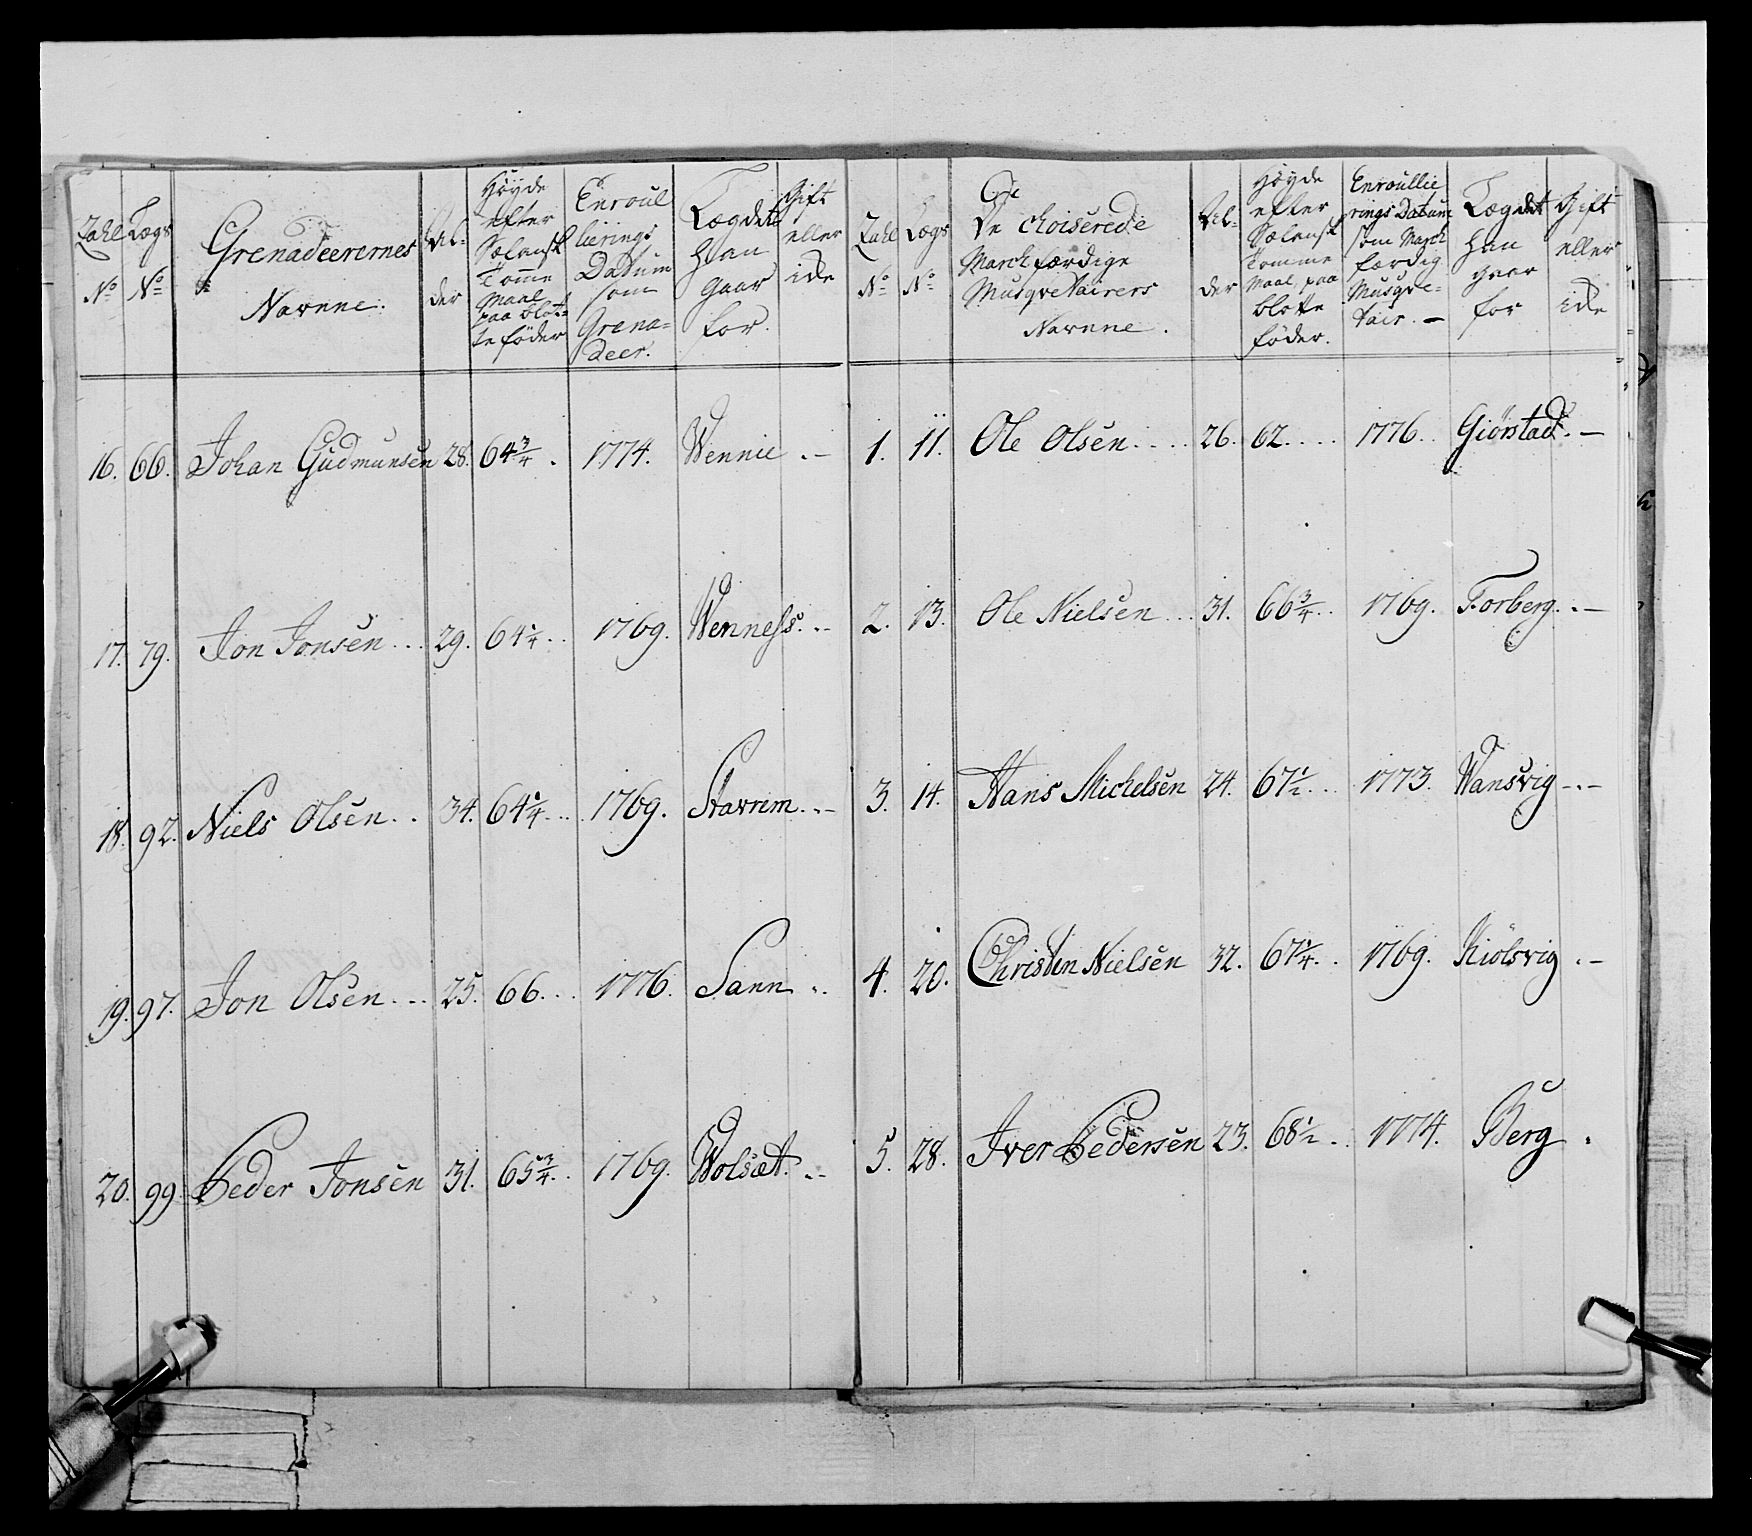 Zahl No
Lægs No
Grenadeerernes Navne.
Ael-der
Höyde efter Sælansk Tomme Maal paa blot-te föder
Enroullierings Datum som Grenadeer.
Lægdet han gaar for.
Gift eller ide
16. 66. Johan Gudmunsen 28. 64¾. 1774. Wennie . –
17. 79. Jon Jonsen ... 29. 64¼ ... 1769. Wenness. . –
18. 92. Niels Olsen . . 34. 64¼ ... 1769. Stavrem . . –
19. 97. Jon Olsen ... 25. 66 ... 1776. Sann . .
20. 99. Peder Jonsen 31. 65¾ . . 1769. Wolsæt . . –
Zahl No
Lægs No
De choiserede Marchfærdige Musqvetairers Navnne.
Ael-der
Höyde efter Sælansk Tomme Maal paa blotte föder.
Enroullierings Datum som March færdig Musqve-tair. –
Lægdet han gaar for
Gift eller ide
1. 11. Ole Olsen .... 26. 62 .... 1776. . Giörstad. –
2. 13. Ole Nielsen ... 31. 66¾ . . 1769. Forberg. . –
3. 14. Hans Michelsen 24. 67½ ... 1773. Wansvig – . –
4. 20. Christen Nielsen 32. 67¼ . . 1769. Kiölsvig . –
5. 28. Iver Pedersen 23. 68½ . . 1774. Berg .